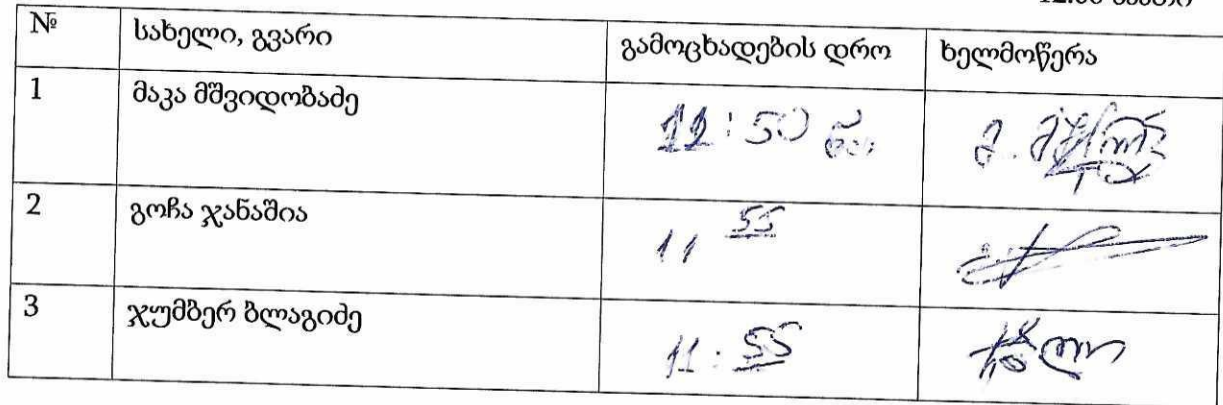 № სახელი, გვარი გამოცხადების დრო ხელმოწერა
1 მაკა მშვიდობაძე :50 წთ
2 გოჩა ჯანაშია 11 55
3 ჯუმბერ ბლაგიძე 11:55